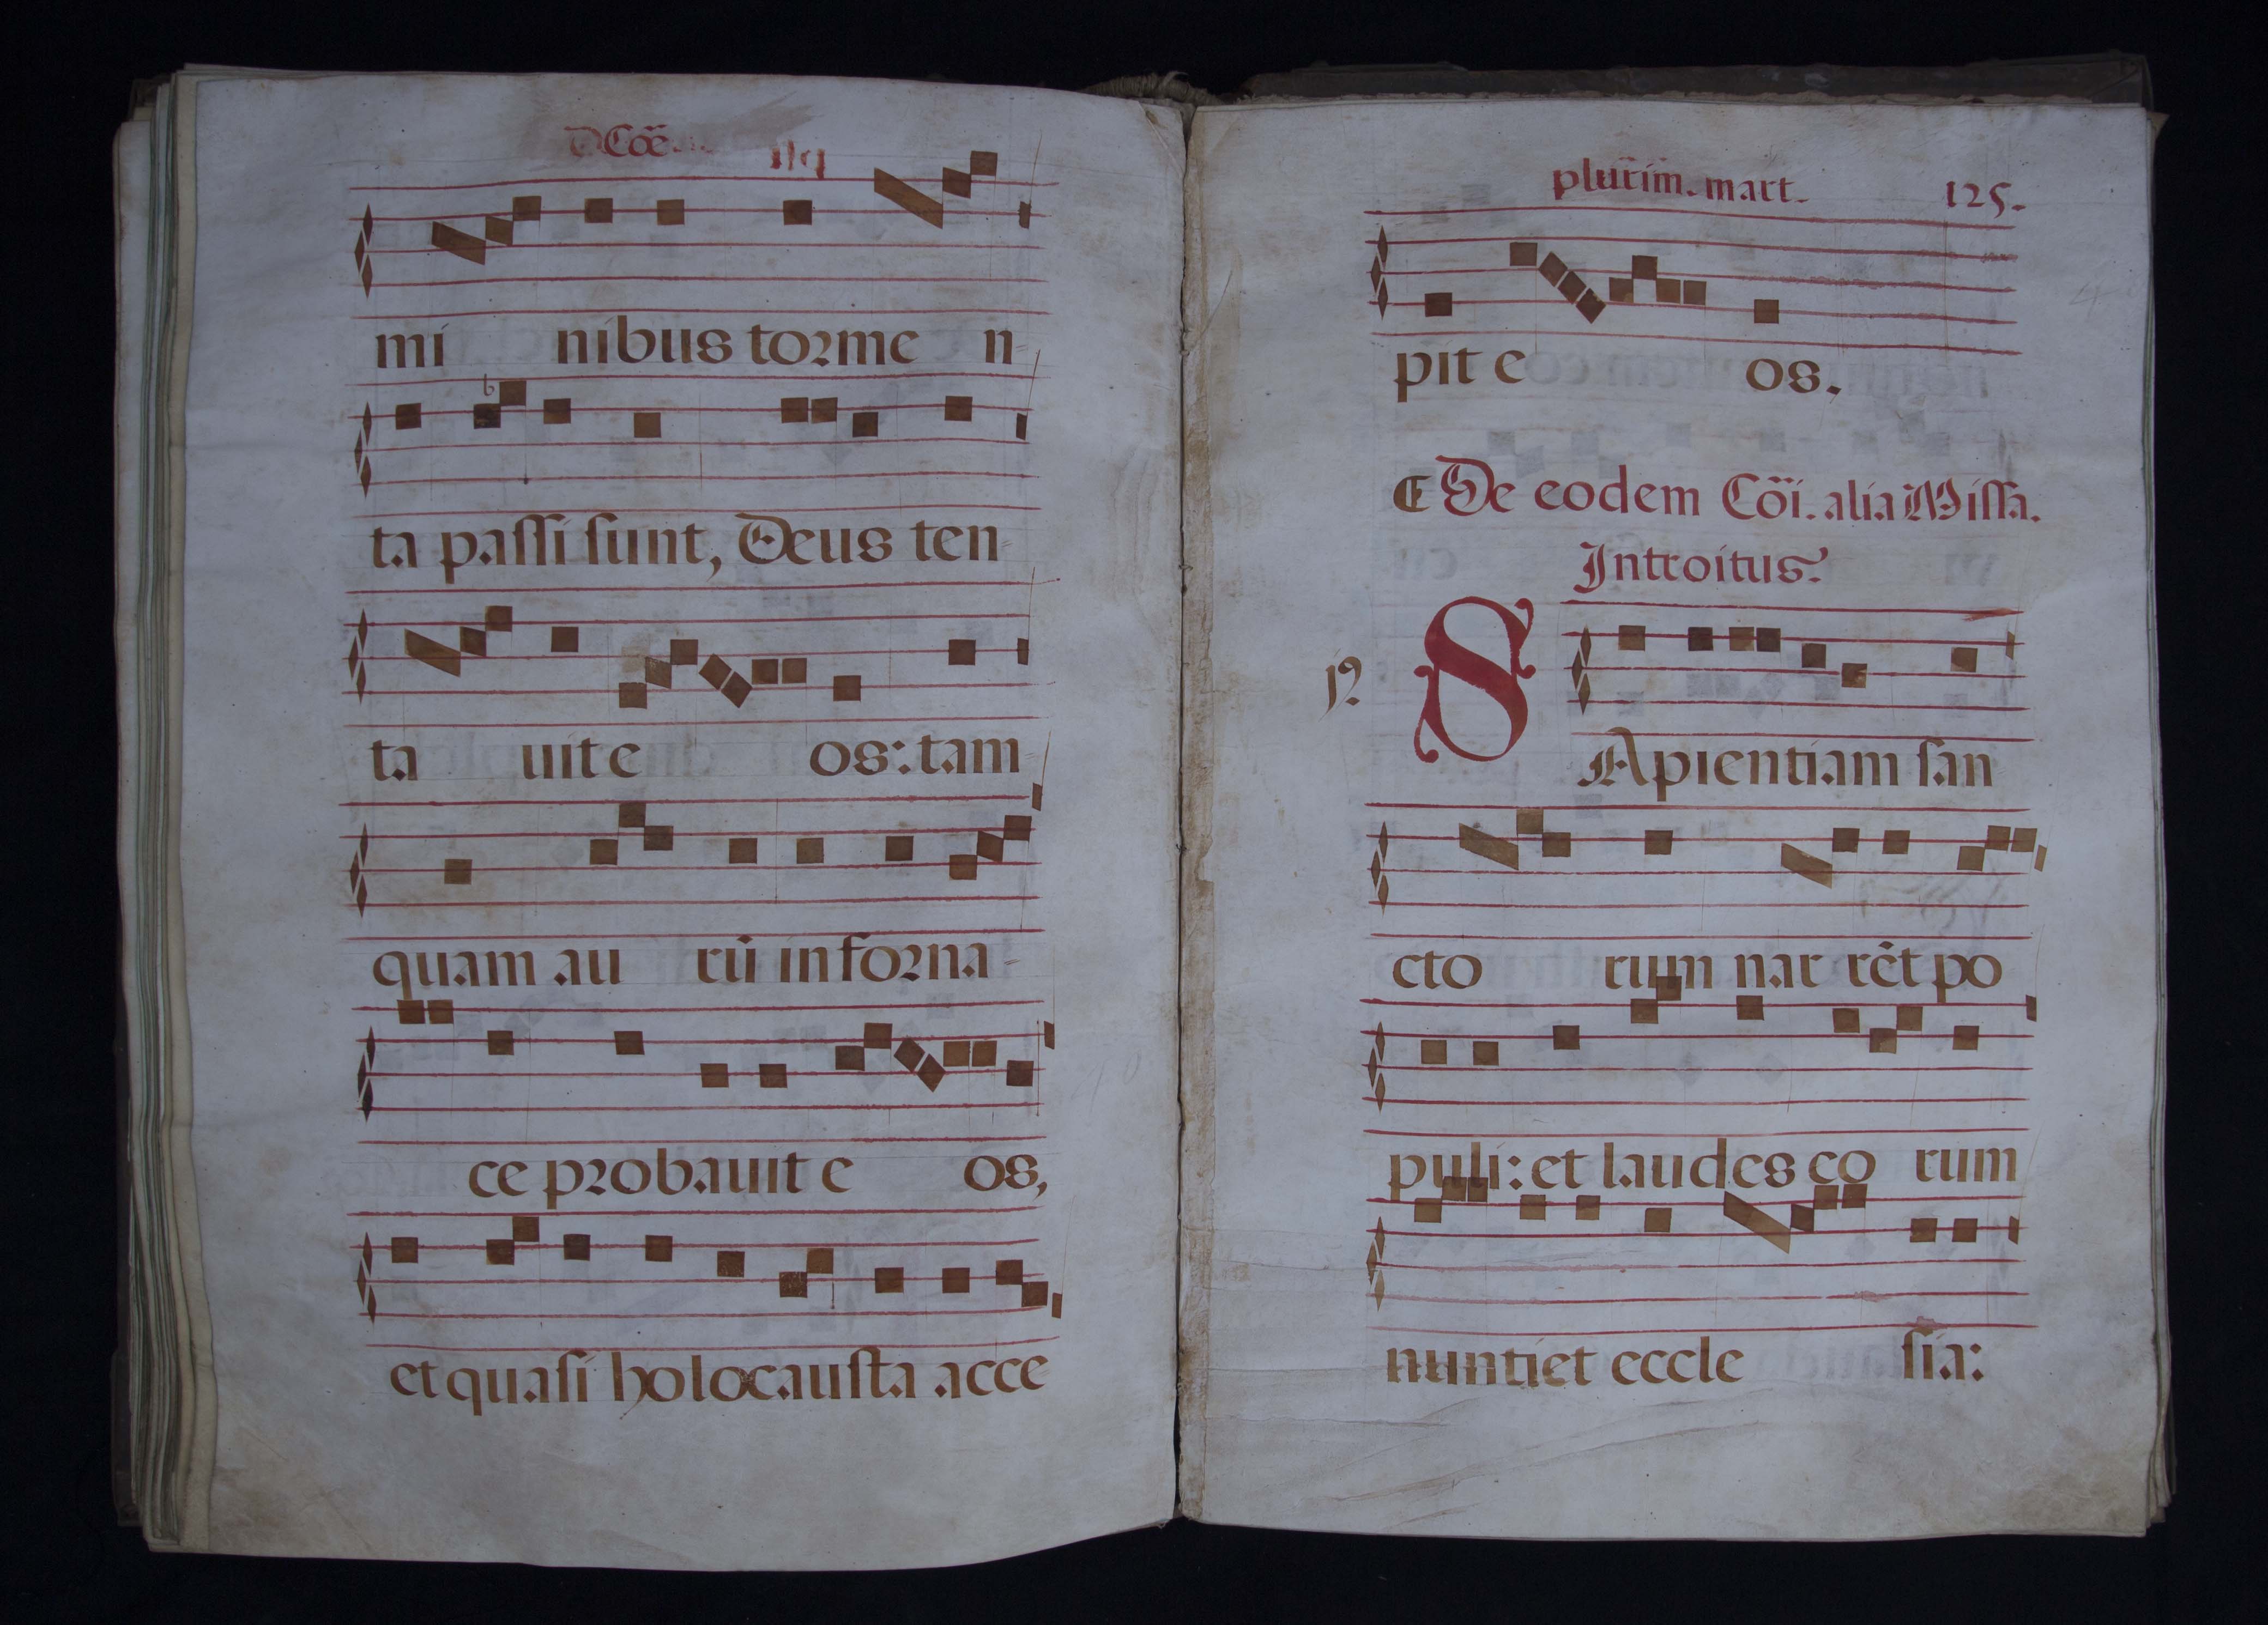 mi nibus torme n
ta passi sunt, Deus ten
ta uit e os: tam
quam au rū in forna
ce probauit e os,
et quasi holocausta acce
plurim̄. mart. 125.
pit e os.
De eodem Cōi. alia Missa.
Introitus.
SApientiam san
cto rum nar rēt po
puli: et laudes eo rum
nuntiet eccle sia: